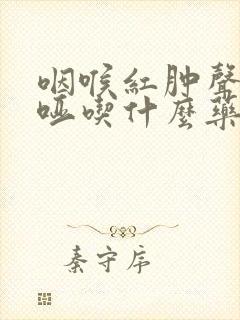 咽喉紅肿聲
哑喫什麼藥
秦守序